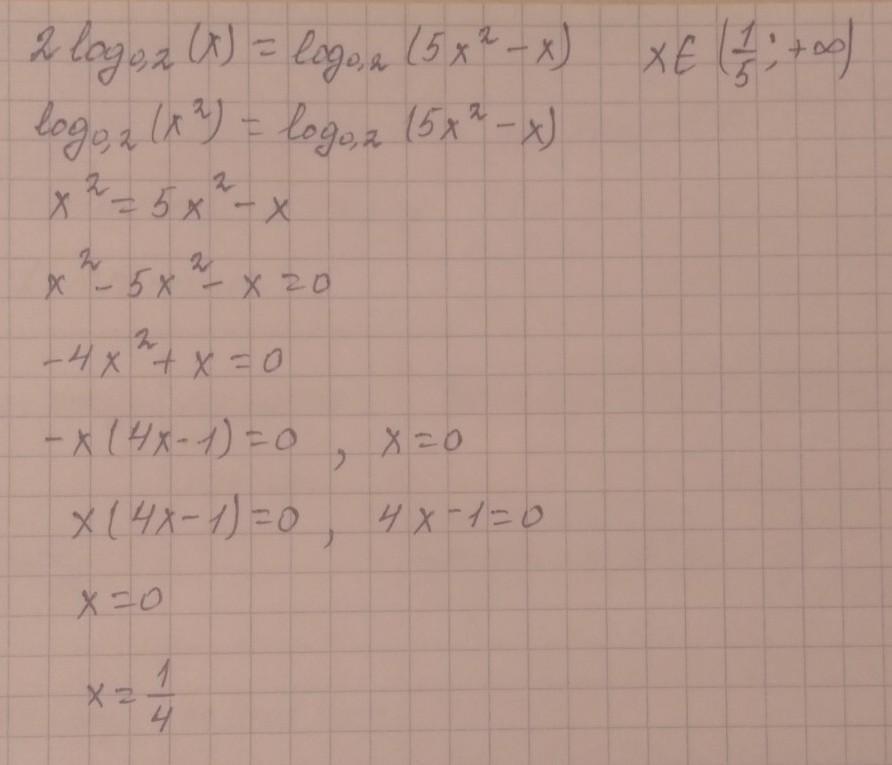 2 log₀,₂ (x) = log₀,₂ (5x² - x) x ∈ (1/5; +∞)
log₀,₂ (x²) = log₀,₂ (5x² - x)
x² = 5x² - x
x² - 5x² - x = 0
-4x² + x = 0
-x(4x-1) = 0 , x = 0
x(4x-1) = 0 , 4x-1 = 0
x = 0
x = 1/4